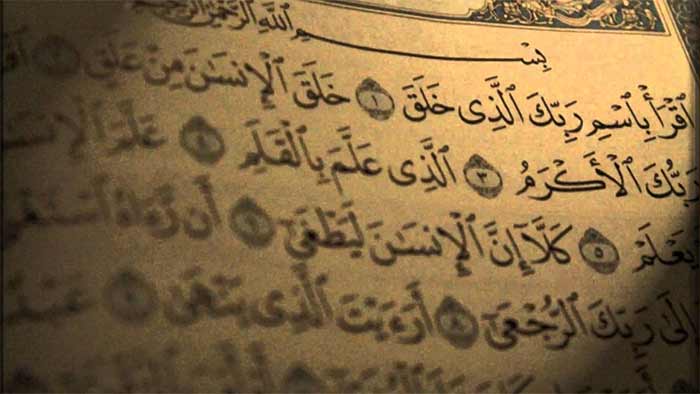 بِسْمِ ٱللَّهِ ٱلرَّحْمَٰنِ ٱلرَّحِيمِ
ٱقْرَأْ بِٱسْمِ رَبِّكَ ٱلَّذِى خَلَقَ ١ خَلَقَ ٱلْإِنسَٰنَ مِنْ عَلَقٍ ٢
رَبُّكَ ٱلْأَكْرَمُ ٣ ٱلَّذِى عَلَّمَ بِٱلْقَلَمِ ٤ عَلَّمَ ٱلْإِنسَٰنَ
يَعْلَمْ ٥ كَلَّآ إِنَّ ٱلْإِنسَٰنَ لَيَطْغَىٰٓ ٦ أَن رَّءَاهُ ٱسْتَغْنَىٰٓ
إِلَىٰ رَبِّكَ ٱلرُّجْعَىٰٓ ٨ أَرَءَيْتَ ٱلَّذِى يَنْهَىٰ ٩ عَبْدًا